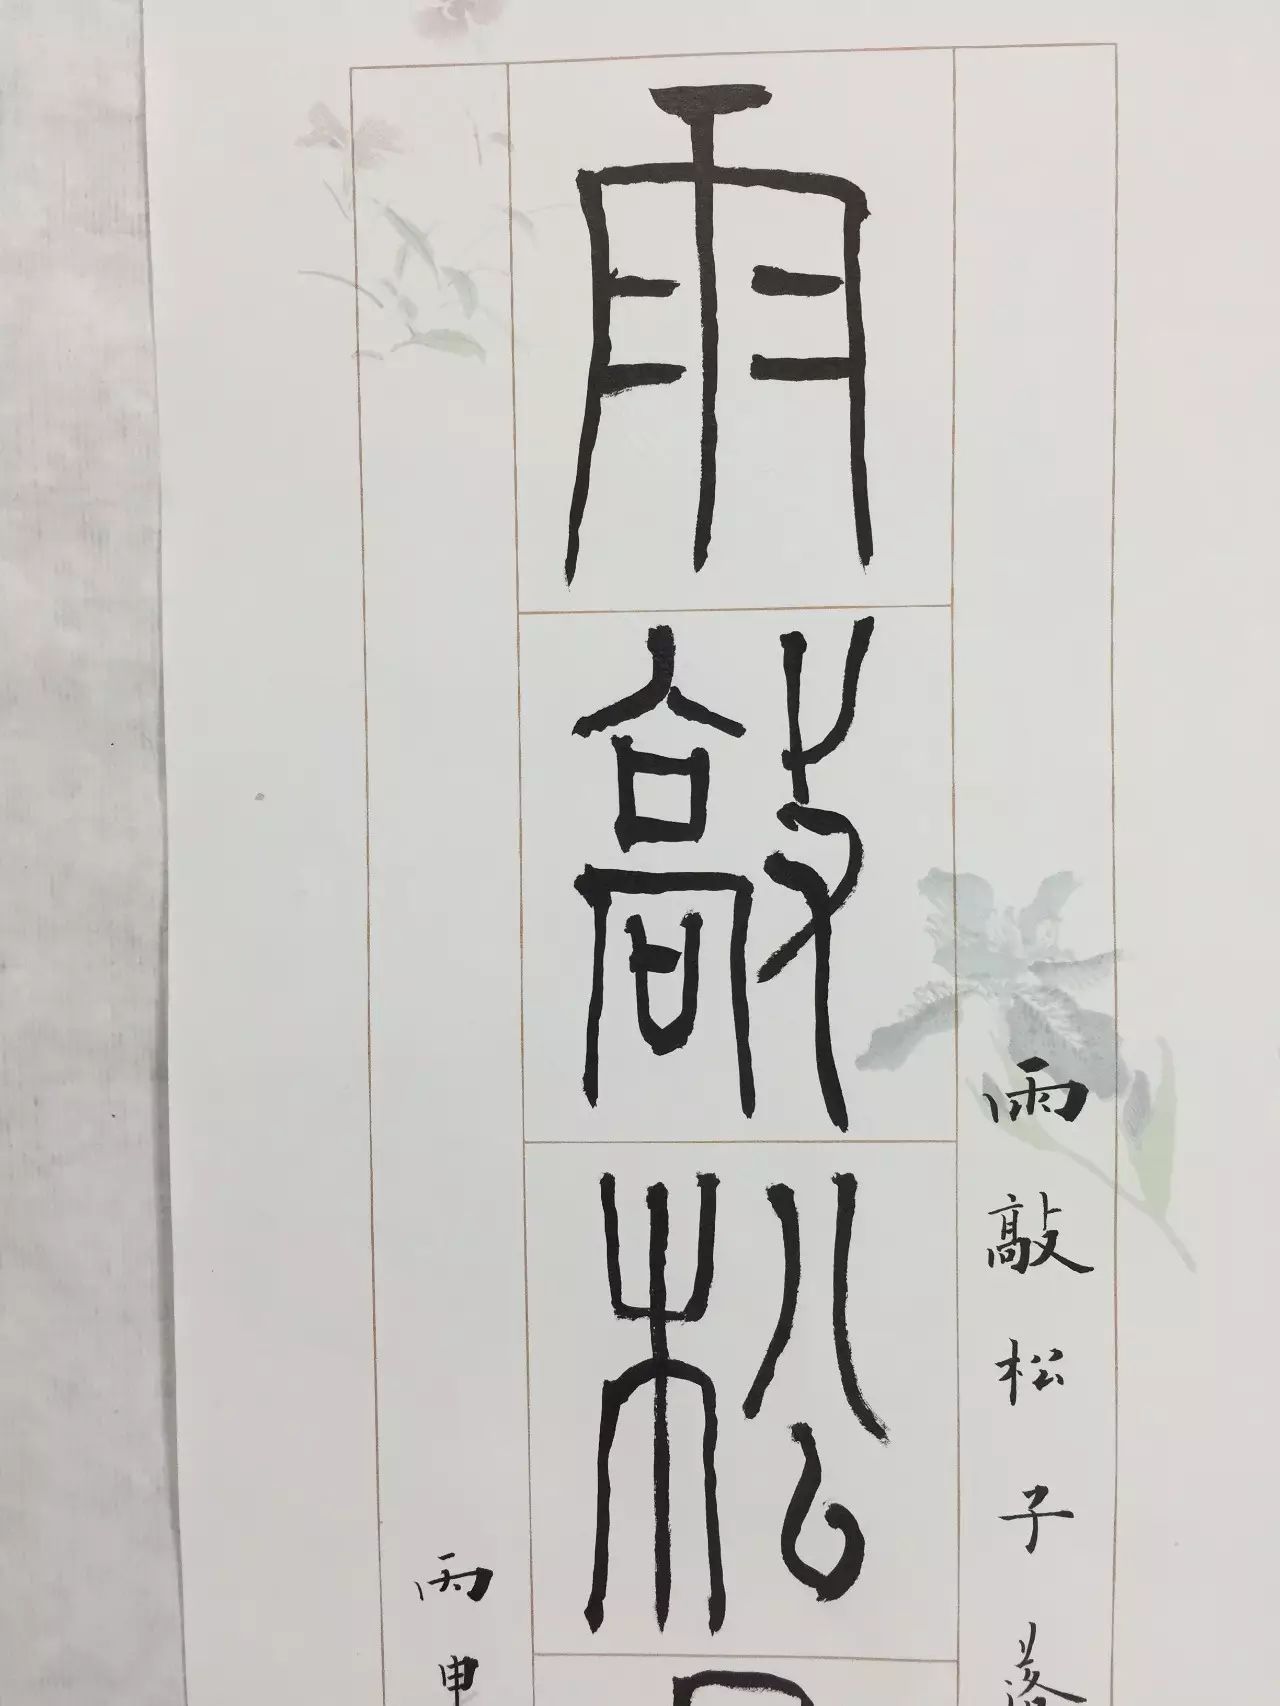 雨敲松子落
雨敲松
丙申